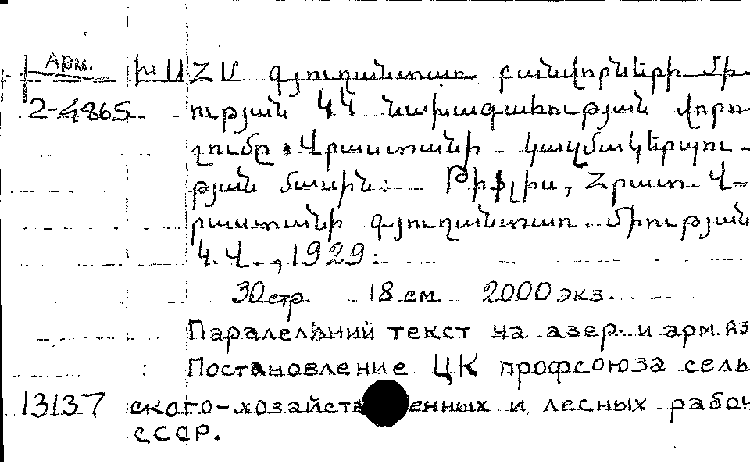 Арм. ԽՍՀՄ գյուղանտառ բանվորների Մի-
2-4865 ության ԿԿ նախագահության վորո-
շումը Վրաստանի կազմակերպու-
թյան մասին: Թիֆլիս, Հրատ. Վ-
րաստանի գյուղանտառ. Միության
Կ.Վ., 1929.
30 стр. 18 см. 2000 экз.
Паралельний текст на азер. и арм. яз
Постановление ЦК профсоюза сель
13137 ского-хозайств енных и лесных рабоч
СССР.